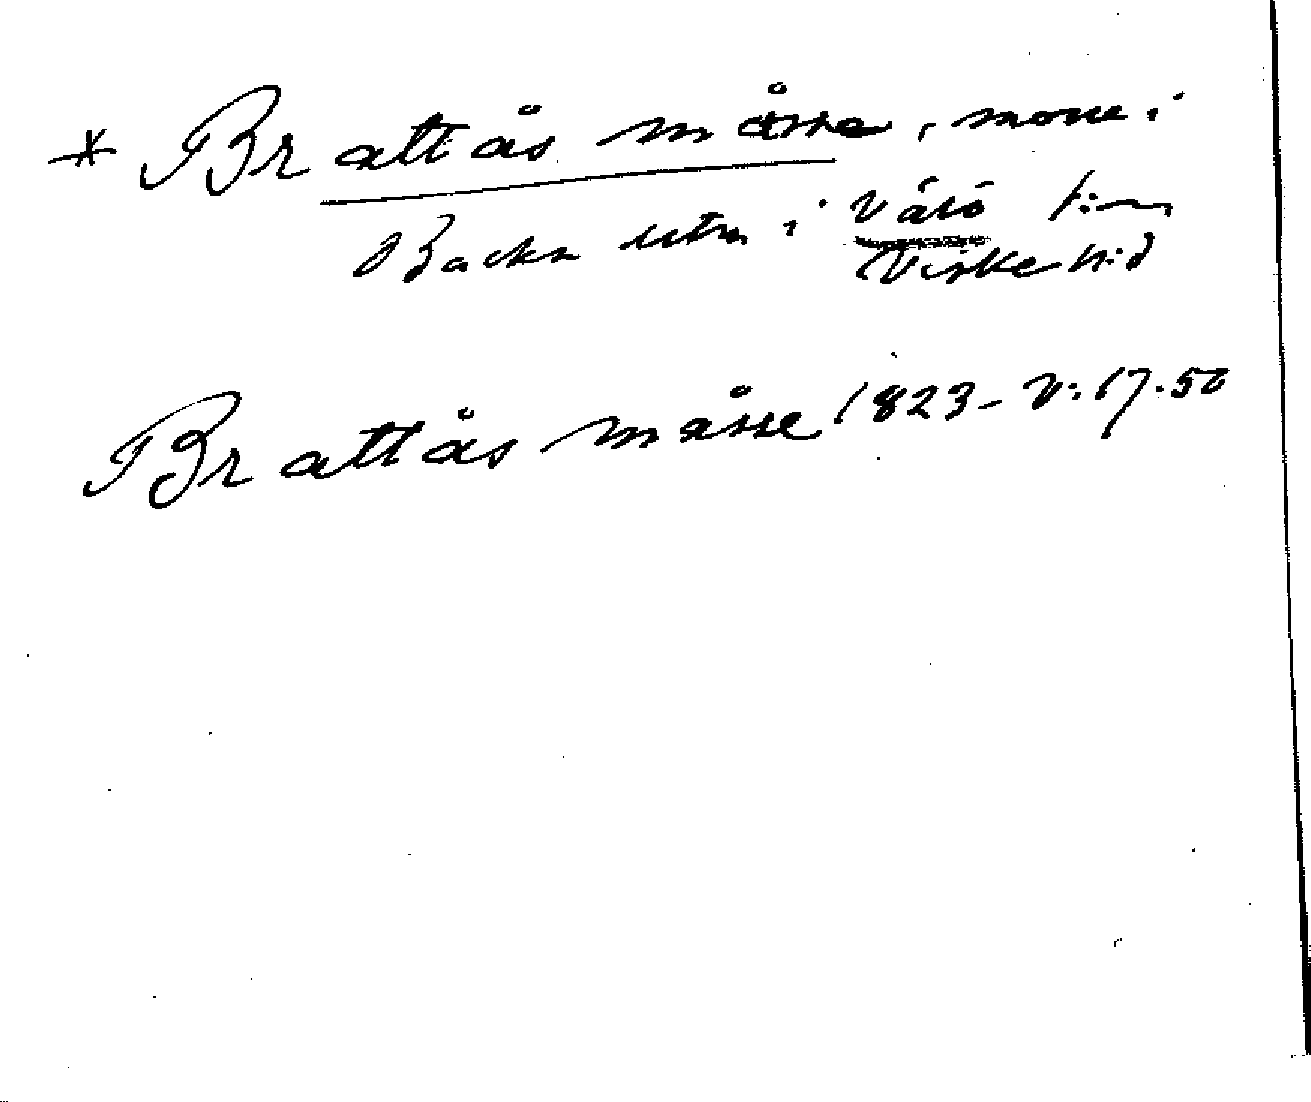 * Brattås måsse, mosse i
Backa utm i Värö s:n
Viske h:d
Brattås måsse 1823 - V: 17.50